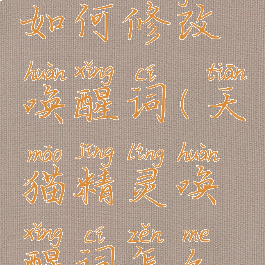 如何修改
huàn xǐng cí tiān
唤醒词(天
māo jīng líng huàn
猫精灵唤
xǐng cí zěn me
醒词怎么